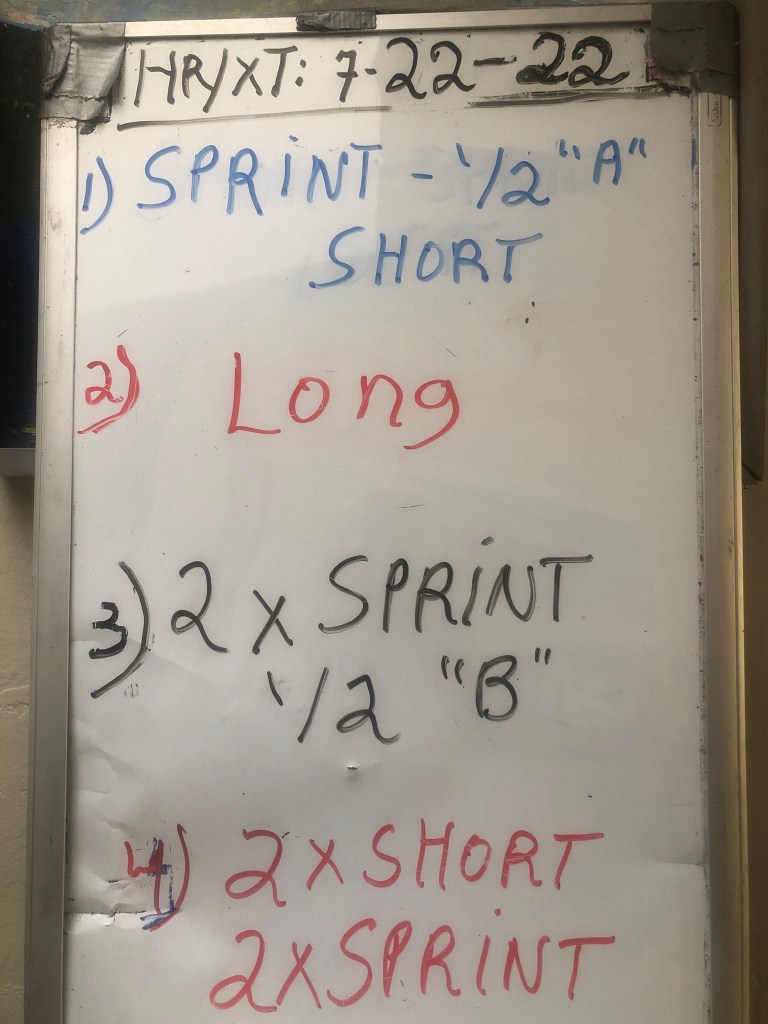 HR/XT: 7-22-22
1) SPRINT - 1/2 "A"
SHORT
2) Long
3) 2 x SPRINT
1/2 "B"
4) 2 X SHORT
2 X SPRINT